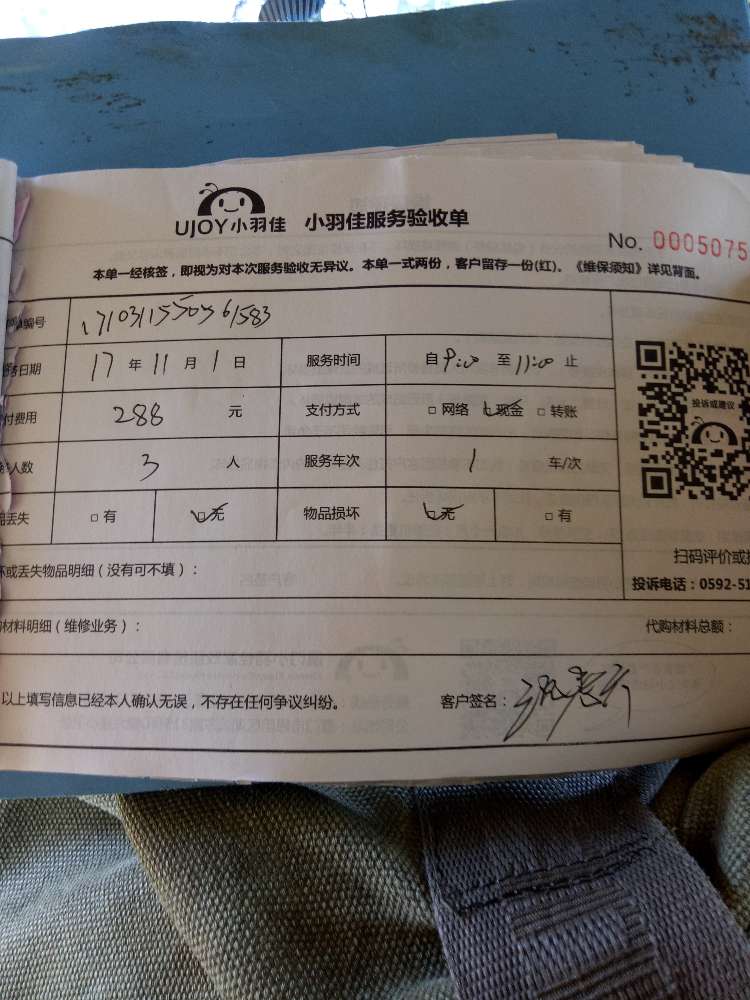 UJOY小羽佳 小羽佳服务验收单
No. 0005075
本单一经核签，即视为对本次服务验收无异议。本单一式两份，客户留存一份(红)。《维保须知》详见背面。
编号
日期 17年11月1日 服务时间 自9:00至11:00止
付费用 288 元 支付方式 □网络 □现金 □转账
人数 3 人 服务车次 1 车/次
丢失 □有 □无 物品损坏 □无 □有
投诉或建议
扫码评价或
投诉电话：0592-51
坏或丢失物品明细（没有可不填）：
材料明细（维修业务）： 代购材料总额：
以上填写信息已经本人确认无误，不存在任何争议纠纷。 客户签名：